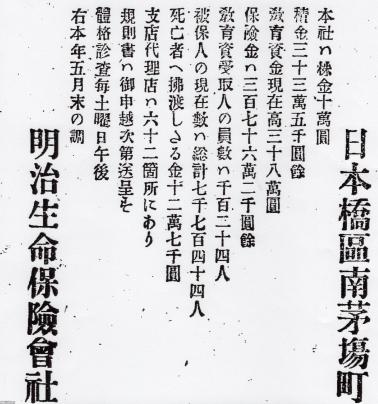 日本橋區南茅塲町
本社ハ株金十萬圓
積金三十三萬五千圓餘
敎育資金現在高三十八萬圓
保險金ハ三百七十六萬二千圓餘
敎育資受取人の員數ハ千百三十四人
被保人の現在數ハ總計七千七百四十四人
死亡者へ拂渡しさる金十二萬七千圓
支店代理店ハ六十二箇所にあり
規則書ハ御申越次第送呈そ
體格診査每土曜日午後
右本年五月末の調
明治生命保險會社